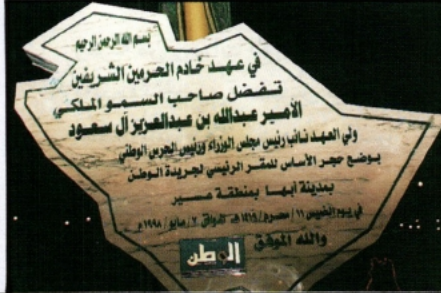 بسم الله الرحمن الرحيم
في عهد خادم الحرمين الشريفين
تفضل صاحب السمو الملكي
الأمير عبدالله بن عبدالعزيز آل سعود
ولي العهد نائب رئيس مجلس الوزراء ورئيس الحرس الوطني
بوضع حجر الأساس للمقر الرئيسي لجريدة الوطن
بمدينة أبها بمنطقة عسير
في يوم الخميس ١١/محرم/١٤١٩هـ الموافق ٧/مايو/١٩٩٨م
والله الموفق
الوطن